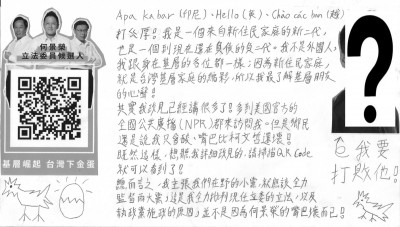 何景榮
立法委員候選人
基層崛起 台灣下金蛋
Apa kabar (印尼)、Hello (英)、Chào các bạn (越)
打么厚!我是一個來自新住民家庭的新二代,
也是一個到現在還在負債的負二代。我不是外國人,
我跟身在基層的各位都一樣;因為新住民家庭,
就是台灣基層家庭的縮影,所以我最了解基層朋友
的心聲!
其實我政見已經講很多了!多到美國官方的
全國公共廣播(NPR)都來訪問我。但是鄉民
還是說我只會酸、嘴巴比柯文哲還壞!
既然這樣,想聽我詳細政見的,請掃描QR Code
就可以看到了!
總而言之,我主張我們在野的小黨,就應該全力
監督兩大黨;這是我全力批判現任立委的立法,以及
執政黨施政的原因,並不是因為何景榮的嘴巴壞而已!
?
我要
打敗他!